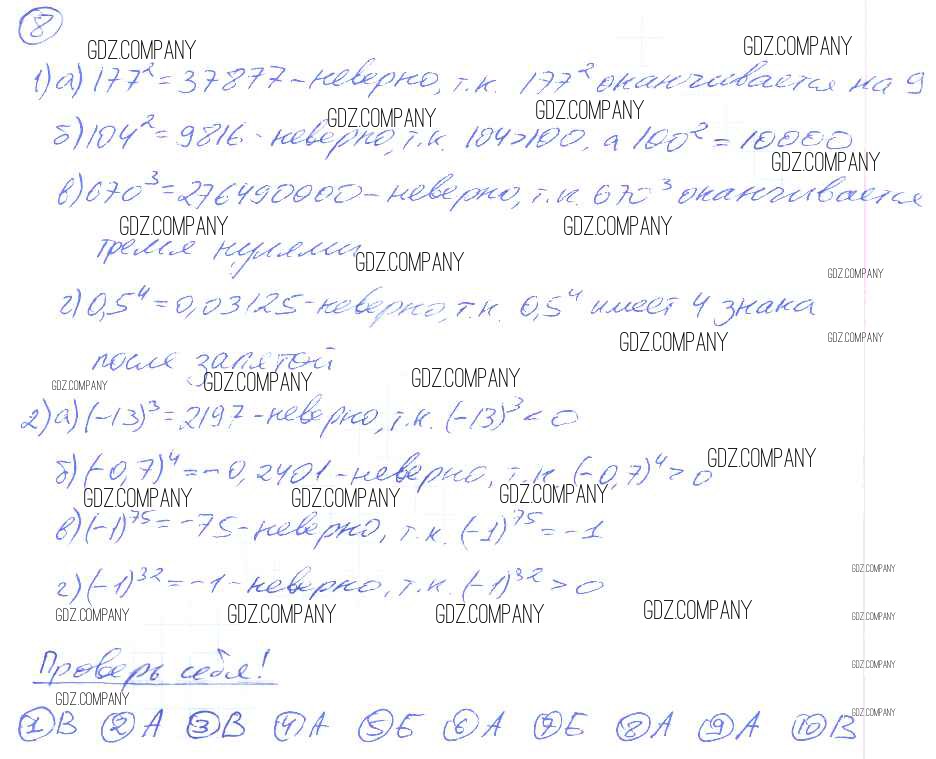 8
GDZ.COMPANY GDZ.COMPANY
1) а) 177² = 37877 - неверно, т.к. 177² оканчивается на 9
GDZ.COMPANY GDZ.COMPANY
б) 104² = 9816 - неверно, т.к. 104>100, а 100² = 10000
GDZ.COMPANY
в) 670³ = 276490000 - неверно, т.к. 670³ оканчивается
GDZ.COMPANY GDZ.COMPANY
тремя нулями
GDZ.COMPANY GDZ.COMPANY
г) 0,5⁴ = 0,03125 - неверно, т.к. 0,5⁴ имеет 4 знака
GDZ.COMPANY GDZ.COMPANY
после запятой
GDZ.COMPANY GDZ.COMPANY GDZ.COMPANY
2) а) (-13)³ = 2197 - неверно, т.к. (-13)³ < 0
GDZ.COMPANY
б) (-0,7)⁴ = -0,2401 - неверно, т.к. (-0,7)⁴ > 0
GDZ.COMPANY GDZ.COMPANY GDZ.COMPANY
в) (-1)⁷⁵ = -75 - неверно, т.к. (-1)⁷⁵ = -1
GDZ.COMPANY
г) (-1)³² = -1 - неверно, т.к. (-1)³² > 0
GDZ.COMPANY GDZ.COMPANY GDZ.COMPANY GDZ.COMPANY GDZ.COMPANY
Проверь себя!
GDZ.COMPANY
GDZ.COMPANY GDZ.COMPANY
1 В 2 А 3 В 4 А 5 Б 6 А 7 Б 8 А 9 А 10 В